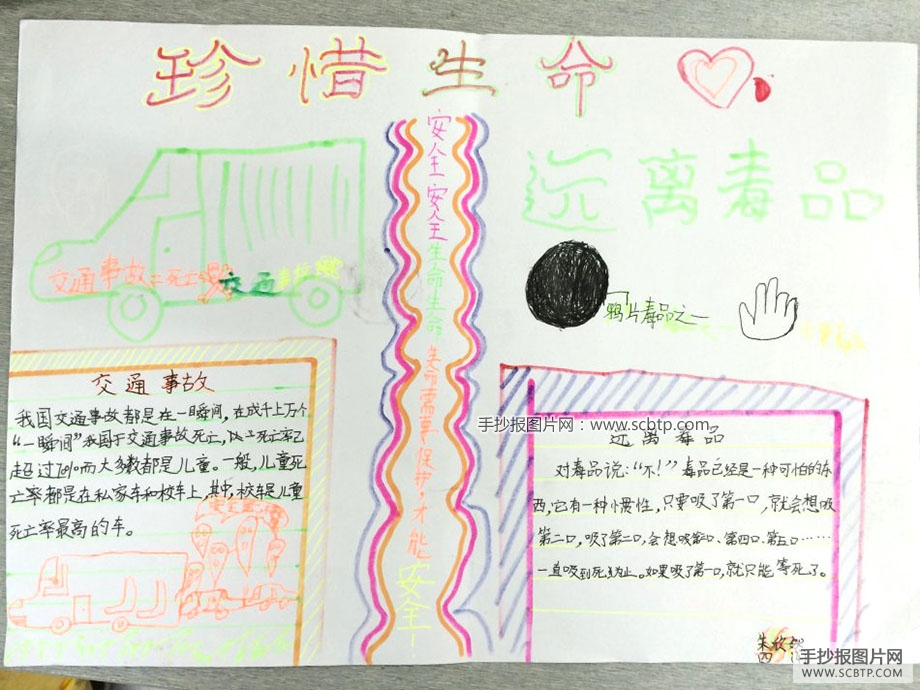 珍惜生命
安全安全生命生命
生命需要保护,才能
安全!
远离毒品
交通事故=死亡
交通
鸦片毒品之一
交通事故
我国交通事故都是在一瞬间,在成千上万个
“一瞬间”我国于交通事故死亡,
超过 而大多数都是儿童。一般,儿童死
亡率都是在私家车和校车上,其中,校车是儿童
死亡率最高的车。
手抄报图片网:www.scbtp.com
远离毒品
对毒品说:“不!”毒品已经是一种可怕的东
西,它有一种惯性,只要吸了第一口,就会想吸
第二口,吸了第二口,会想吸第 口、第四口、第五口……
一直吸到死为止。如果吸了第一口,就只能等死了。
手抄报图片网
WWW.SCBTP.COM